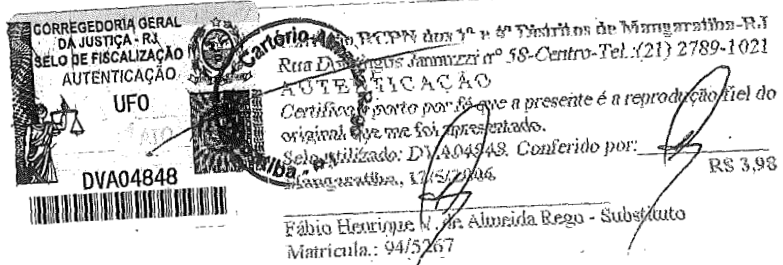 CORREGEDORIA GERAL
DA JUSTIÇA - RJ
SELO DE FISCALIZAÇÃO
AUTENTICAÇÃO
UFO
DVA04848
Cartório
RCPN dos 1º e 4º Distritos de Mangaratiba-RJ
Rua Domingos Jannuzzi nº 58-Centro-Tel.:(21) 2789-1021
AUTENTICAÇÃO
Certifico e porto por fé que a presente é a reprodução fiel do
original que me foi apresentado.
Selo utilizado: DVA04848. Conferido por:
Mangaratiba,
R$ 3,98
Fábio Henrique V. de Almeida Rego - Substituto
Matrícula.: 94/5267